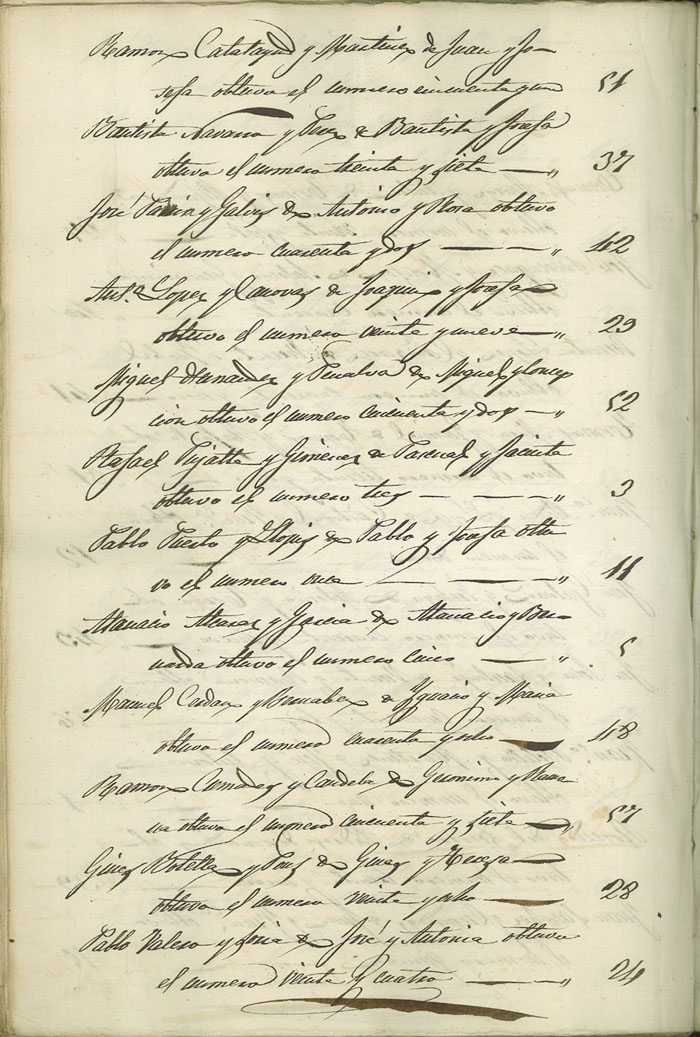 Ramon Calatayud y Martinez de Juan y Jo-
sefa obtuvo el numero cincuenta y uno 51
Bautista Navarro y Perez de Bautista y Josefa
obtuvo el numero treinta y siete — „ 37
José y Galvis de Antonio y Rosa obtuvo
el numero cuarenta y dos — — — „ 42
Ant.º Lopez y Canovas de Joaquin y Josefa
obtuvo el numero veinte y nueve — „ 29
Miguel Hernandez y Penalva de Miguel y Concep
cion obtuvo el numero cincuenta y dos — „ 52
Rafael Pujalte y Gimenez de Pascual y Jacinta
obtuvo el numero tres — — — „ 3
Pablo Puerto y Llopis de Pablo y Josefa obtu
vo el numero once — — — „ 11
Atanacio Alvarez y Garcia de Atanacio y Ber-
narda obtuvo el numero cinco — „ 5
Manuel Cerdan y Bernabe de Ygnacio y Maria
obtuvo el numero cuarenta y ocho — 48
Ramon y Candela de Geronimo y Ramo
na obtuvo el numero cincuenta y siete — „ 57
Gines Botella y Pons de Gines y Teresa —
obtuvo el numero veinte y ocho — 28
Pablo Valero y de José y Antonia obtuvo
el numero veinte y cuatro — — „ 24